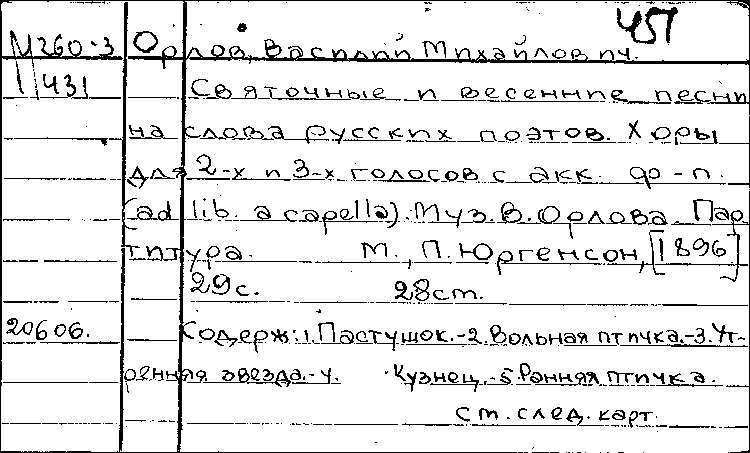 457
М260-3 Орлов, Василий Михайлович.
11431 Святочные и весенние песни
на слова русских поэтов. Хоры
для 2-х и 3-х голосов с акк. ф-п.
(ad lib. a capella). Муз. В. Орлова. Пар
титура. М., П. Юргенсон, [1896]
29с. 28ст.
20606. Содерж: 1. Пастушок.-2. Вольная птичка.-3. Ут-
ренняя звезда.-4. Кузнец.-5. Ранняя птичка.
см. след. карт.